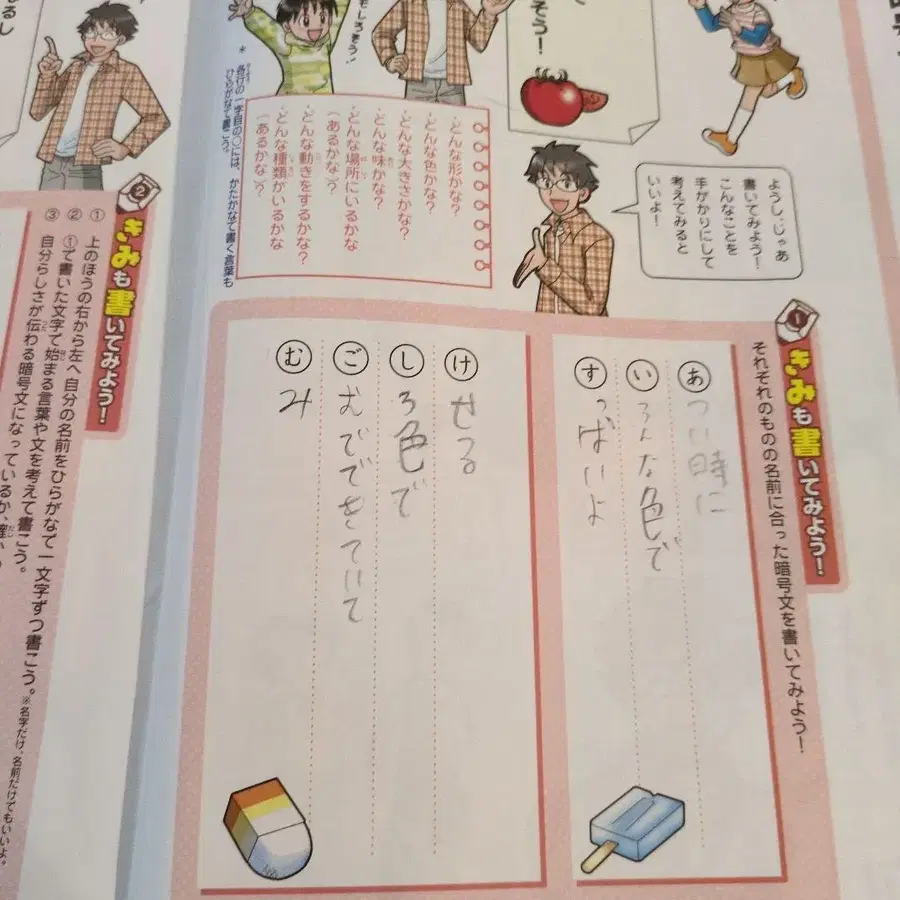 ようし、じゃあ
書いてみよう！
こんなことを
手がかりにして
考えてみると
いいよ！
そう！
・どんな形かな？
・どんな色かな？
・どんな大きさかな？
・どんな味かな？
・どんな場所にいるかな
（あるかな）？
・どんな動きをするかな？
・どんな種類がいるかな
（あるかな）？
＊各行の一字目の○には、かたかなで書く言葉も
ひらがなで書こう。
1 きみも書いてみよう！
それぞれのものの名前に合った暗号文を書いてみよう！
あ つい時に
い ろんな色で
す っぱいよ
け せる
し ろ色で
ご むでできていて
む み
2 きみも書いてみよう！
① 上のほうの右から左へ自分の名前をひらがなで一文字ずつ書こう。※名字だけ、名前だけでもいいよ。
② ①で書いた文字で始まる言葉や文を考えて書こう。
③ 自分らしさが伝わる暗号文になっているか、確か